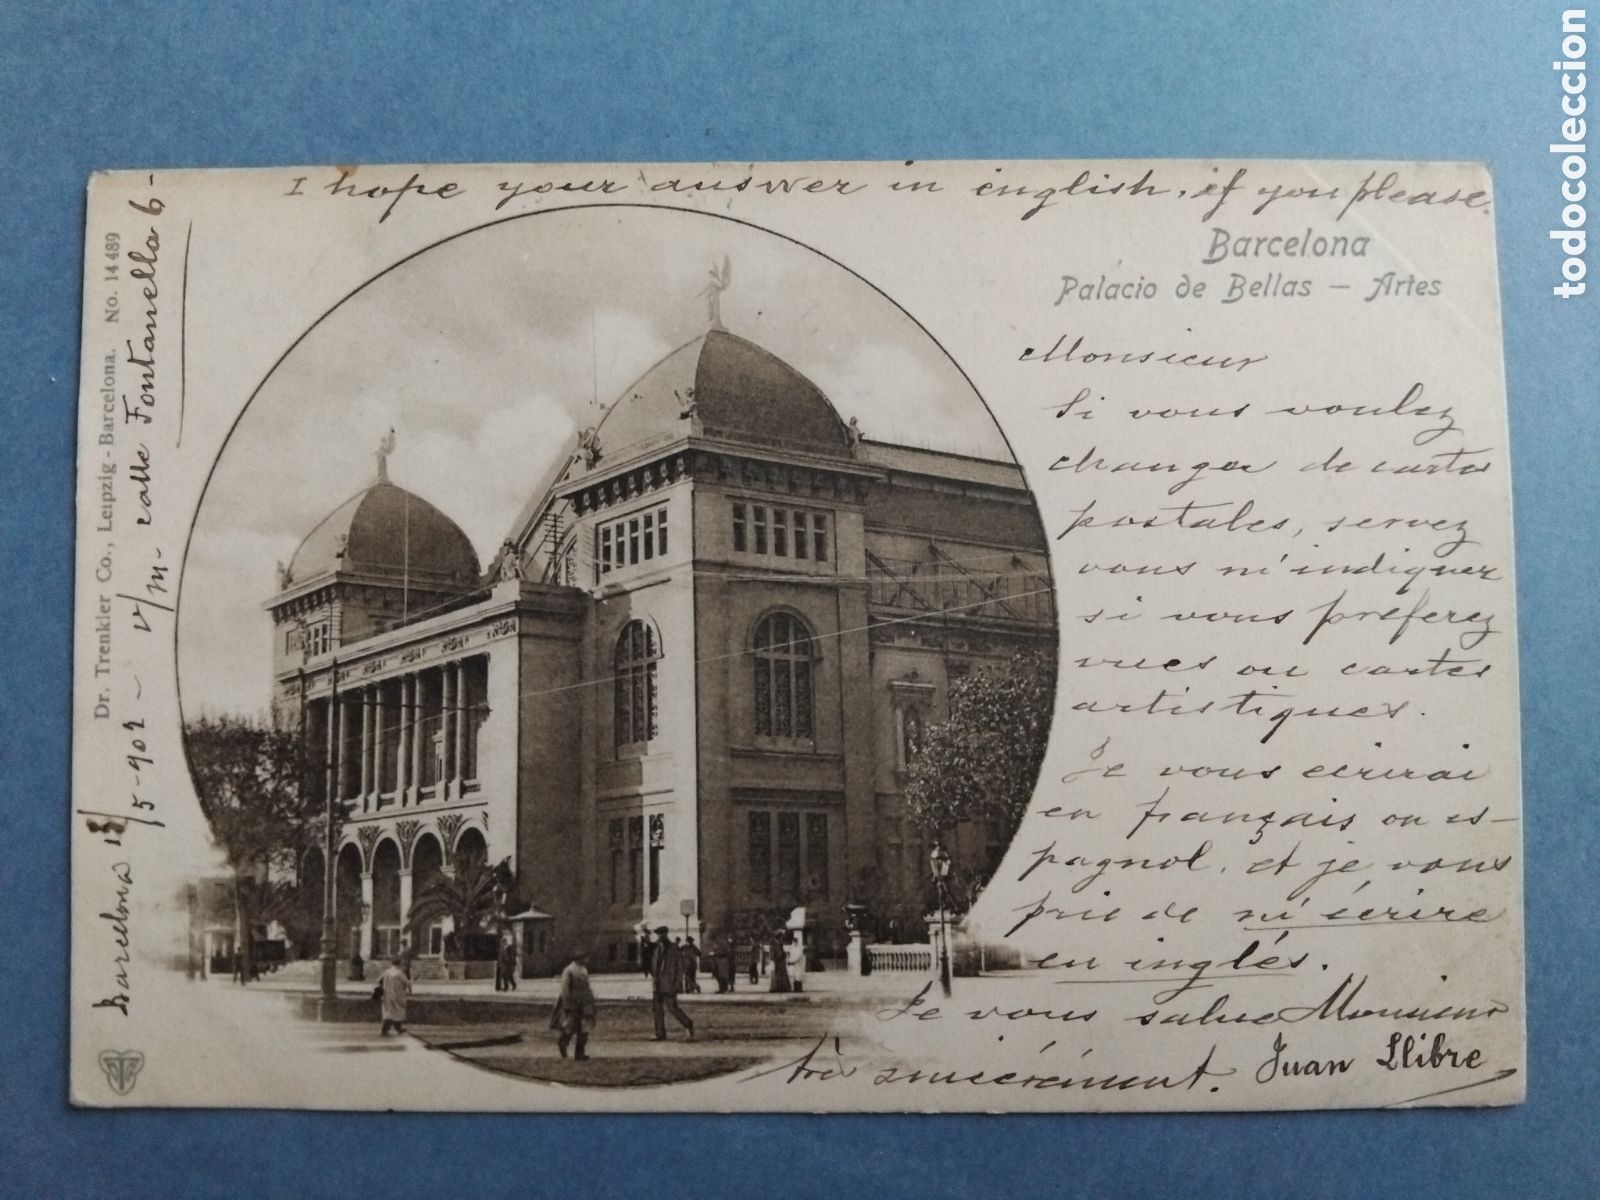 I hope your answer in english, if you please.
Barcelona
Palacio de Bellas - Artes
Monsieur
Si vous voulez
changer de cartes
postales, servez
vous m'indiquer
si vous préferez
vues ou cartes
artistiques.
Je vous ecrirai
en français ou es-
pagnol, et je vous
prie de m'écrire
en inglés.
Je vous salue Monsieur
très sincérément. Juan Llibre
Barcelona 13/5-902 - v/m - calle Fontanella 6-
Dr. Trenkler Co., Leipzig - Barcelona. No. 14 489
todocoleccion